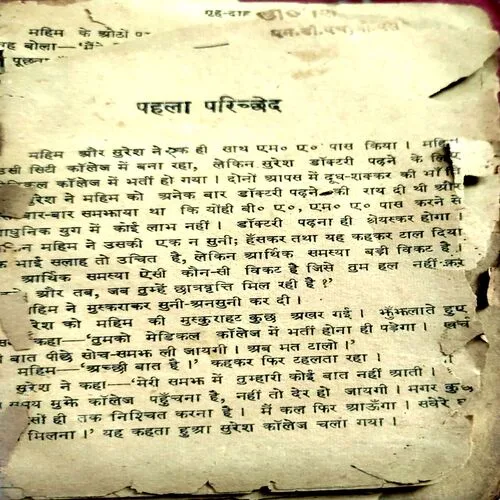 गृह-दाह
महिम के ओठों
वह बोला—'मैं
पूछना
पहला परिच्छेद
महिम और सुरेश ने एक ही साथ एम० ए० पास किया । महिम
उसी सिटी कॉलेज में बना रहा, लेकिन सुरेश डॉक्टरी पढ़ने के लिए
मेडिकल कॉलेज में भर्ती हो गया । दोनों आपस में दूध-शक्कर की भाँति
सुरेश ने महिम को अनेक बार डॉक्टरी पढ़ने की राय दी थी और
बार-बार समझाया था कि योंही बी० ए०, एम० ए० पास करने से
आधुनिक युग में कोई लाभ नहीं । डॉक्टरी पढ़ना ही श्रेयस्कर होगा ।
महिम ने उसकी एक न सुनी; हँसकर तथा यह कहकर टाल दिया
भाई सलाह तो उचित है, लेकिन आर्थिक समस्या बड़ी विकट है ।
आर्थिक समस्या ऐसी कौन-सी विकट है जिसे तुम हल नहीं कर
और तब, जब तुम्हें छात्रवृत्ति मिल रही है ?'
महिम ने मुस्कराकर सुनी-अनसुनी कर दी ।
सुरेश को महिम की मुस्कुराहट कुछ अखर गई । झुँझलाते हुए
कहा—'तुमको मेडिकल कॉलेज में भर्ती होना ही पड़ेगा । खर्च
बात पीछे सोच-समझ ली जायगी । अब मत टालो ।'
महिम—'अच्छी बात है ।' कहकर फिर टहलता रहा ।
सुरेश ने कहा—'मेरी समझ में तुम्हारी कोई बात नहीं आती ।
समय मुझे कॉलेज पहुँचना है, नहीं तो देर हो जायगी । मगर कुछ
ही तक निश्चित करना है । मैं कल फिर आऊँगा । सवेरे
मिलना ।' यह कहता हुआ सुरेश कॉलेज चला गया ।